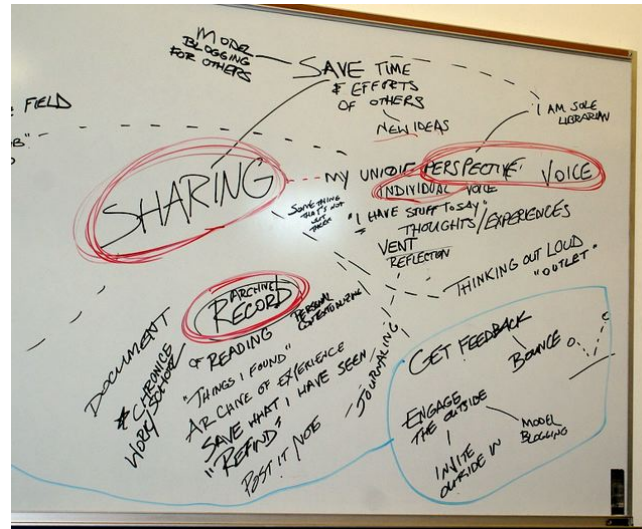 MODEL
BLOGGING
FOR OTHERS
SAVE TIME
& EFFORTS
OF OTHERS
NEW IDEAS
I AM SOLE
LIBRARIAN
FIELD
SHARING
MY UNIQUE PERSPECTIVE VOICE
INDIVIDUAL VOICE
SOMETHING
THAT'S NOT
OUT
THERE
"I HAVE STUFF TO SAY"
THOUGHTS/EXPERIENCES
VENT
REFLECTION
THINKING OUT LOUD
"OUTLET"
ARCHIVE
RECORD
OF READING
PERSONAL
CONTEXTUALIZING
"THINGS I FOUND"
ARCHIVE OF EXPERIENCE
SAVE WHAT I HAVE SEEN
"REFIND"
POST IT NOTE
JOURNALING
DOCUMENT
& CHRONICE
WORK/SCHOOL
GET FEEDBACK
BOUNCE
ENGAGE
THE OUTSIDE
MODEL
BLOGGING
INVITE
OUTSIDE IN